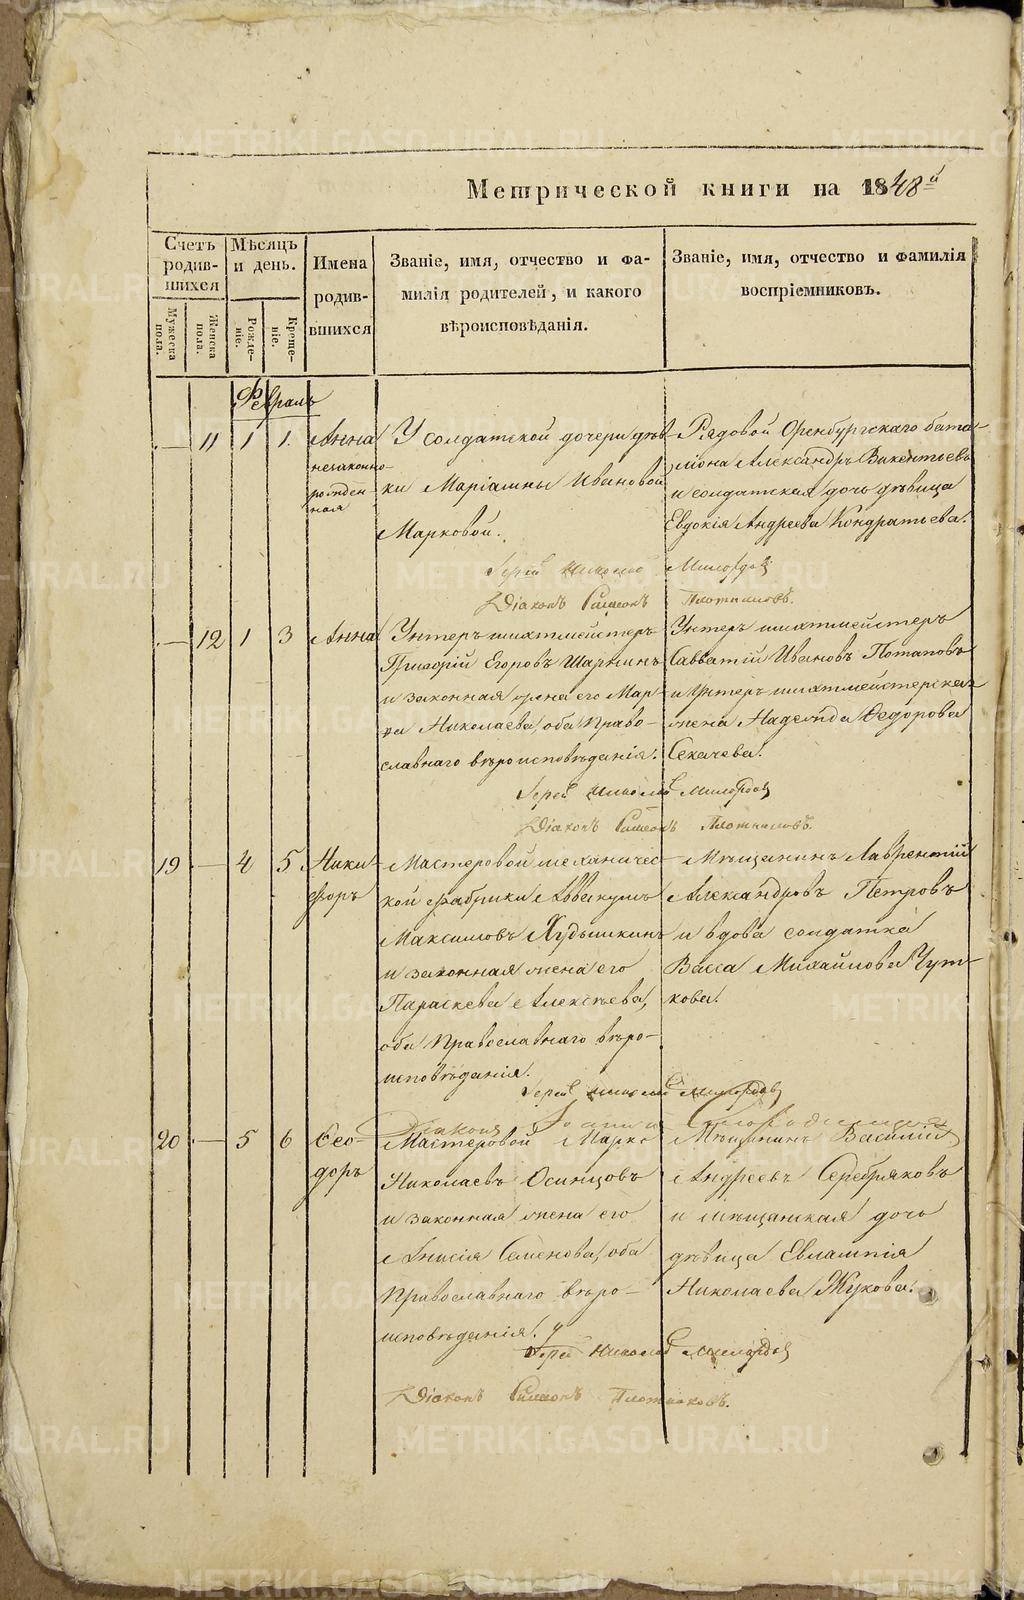 Метрической книги на 1848й
Счетъ родив-шихся
Мѣсяцъ и день.
Имена родив-шихся
Званіе, имя, отчество и фа-
милія родителей, и какого
вѣроисповѣданія.
Званіе, имя, отчество и фамилія
воспріемниковъ.
Мужеска пола.
Женска пола.
Рожде-ніе.
Креще-ніе.
Февраль
11 1 1. Анна
незаконно-
рожден-
ная
У солдатской дочери дѣв-
ки Маріамны Ивановой
Марковой.
Рядовой Оренбургскаго бата-
ліона Александръ Викентьевъ
и солдатская дочь дѣвица
Евдокія Андреева Кондратьева.
Іерей Николай Милордовъ
Діаконъ Симеонъ Плотниковъ.
12 1 3 Анна
Унтеръ шихтмейстеръ
Григорій Егоровъ Шарнинъ
и законная жена его Мар-
ѳа Николаева, оба Право-
славнаго вѣроисповѣданія.
Унтеръ шихтмейстеръ
Савватій Ивановъ Потаповъ
и Унтеръ шихтмейстерска
жена Надежда Ѳедорова
Секачева.
Іерей Николай Милордовъ
Діаконъ Симеонъ Плотниковъ.
19 4 5 Ники-
форъ
Мастеровой механичес-
кой фабрики Аввакумъ
Максимовъ Худышкинъ
и законная жена его
Параскева Алексѣева,
оба Православнаго вѣро-
исповѣданія.
Мѣщанинъ Лаврентій
Александровъ Петровъ
и вдова солдатка
Васса Михайлова Чут-
кова.
Іерей Николай Милордовъ
Діаконъ Іоаннъ
20 5 6 Ѳео-
доръ
Мастеровой Марко
Николаевъ Осинцовъ
и законная жена его
Анисія Семенова, оба
Православнаго вѣро-
исповѣданія.
Мѣщанинъ Василій
Андреевъ Серебряковъ
и мѣщанская дочь
дѣвица Евлампія
Николаева Жукова.
Іерей Николай Милордовъ
Діаконъ Симеонъ Плотниковъ.
METRIKI.GASO-URAL.RU